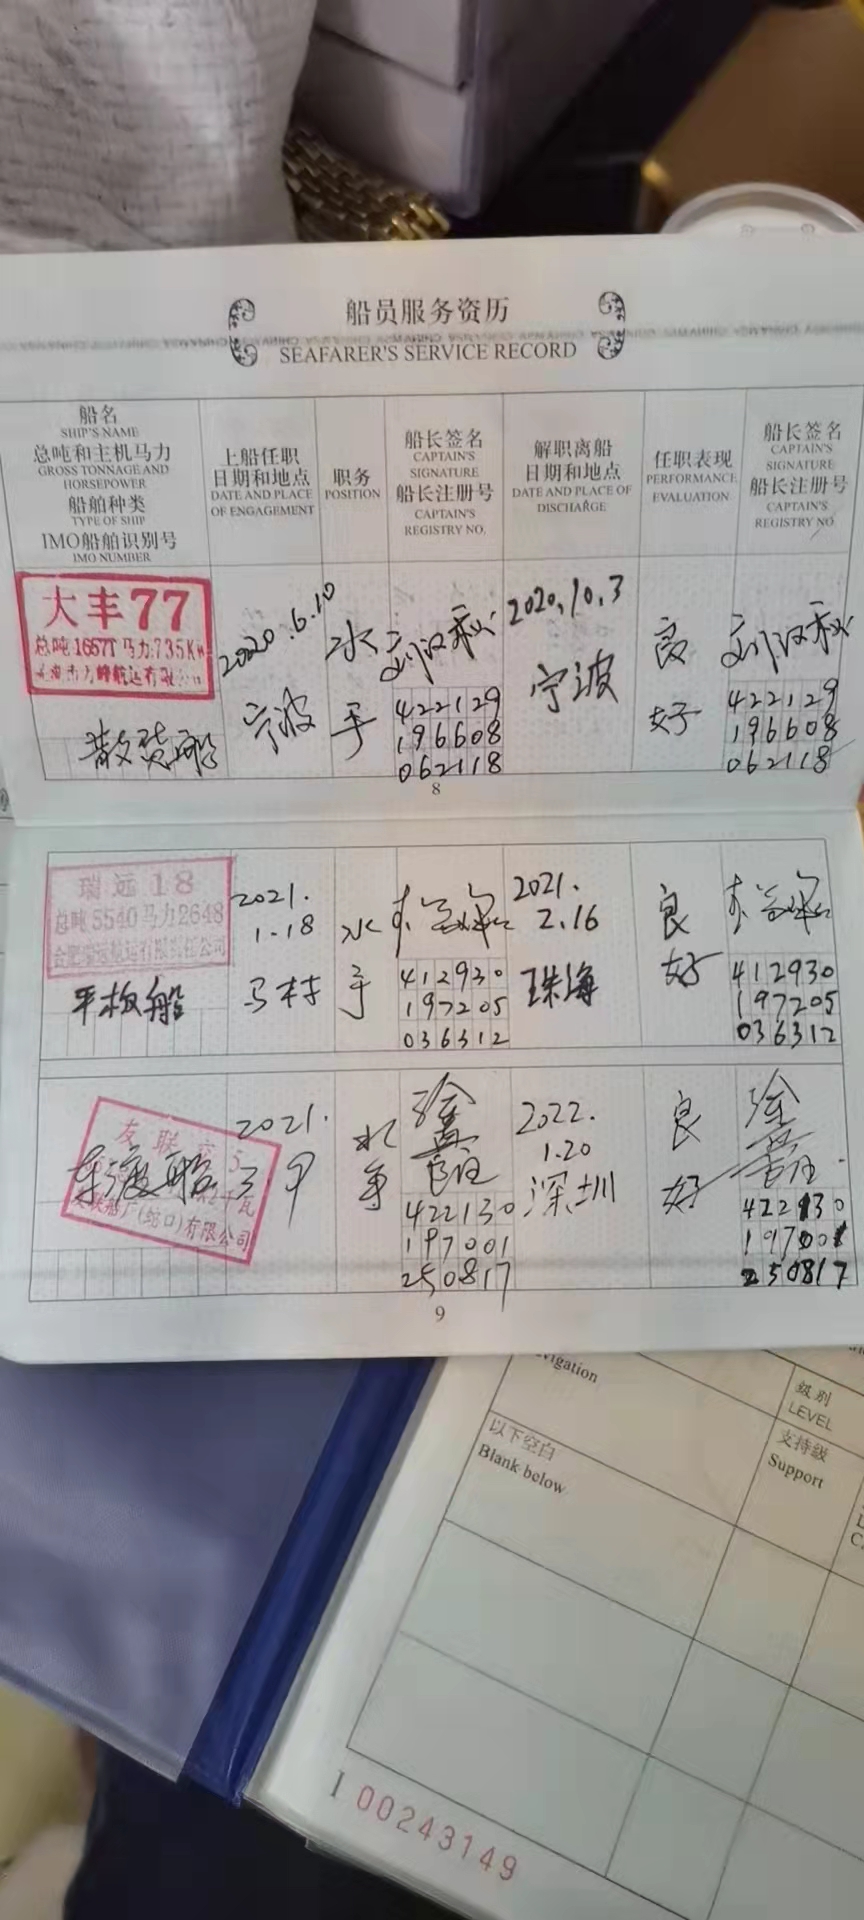 船员服务资历
SEAFARER'S SERVICE RECORD
船名
SHIP'S NAME
总吨和主机马力
GROSS TONNAGE AND
HORSEPOWER
船舶种类
TYPE OF SHIP
IMO船舶识别号
IMO NUMBER
上船任职
日期和地点
DATE AND PLACE
OF ENGAGEMENT
职务
POSITION
船长签名
CAPTAIN'S
SIGNATURE
船长注册号
CAPTAIN'S
REGISTRY NO.
解职离船
日期和地点
DATE AND PLACE OF
DISCHARGE
任职表现
PERFORMANCE
EVALUATION
船长签名
CAPTAIN'S
SIGNATURE
船长注册号
CAPTAIN'S
REGISTRY NO
大丰77
总吨:1657T 马力:735Kw
散货船
2020.6.10
宁波
水
手
刘汉秋
422129
196608
062118
2020.10.3
宁波
良
好
刘汉秋
422129
196608
062118
8
瑞远18
总吨5540马力2648
合肥瑞远航运有限责任公司
平板船
2021.
1.18
马村
水
手
412930
197205
036312
2021.
2.16
珠海
良
好
412930
197205
036312
友联 5
友联船厂(蛇口)有限公司
2021.
水
手
422130
197001
250817
2022.
1.20
深圳
良
好
422130
197001
250817
9
vigation
级别
LEVEL
以下空白
Blank below
支持级
Support
1 00243149